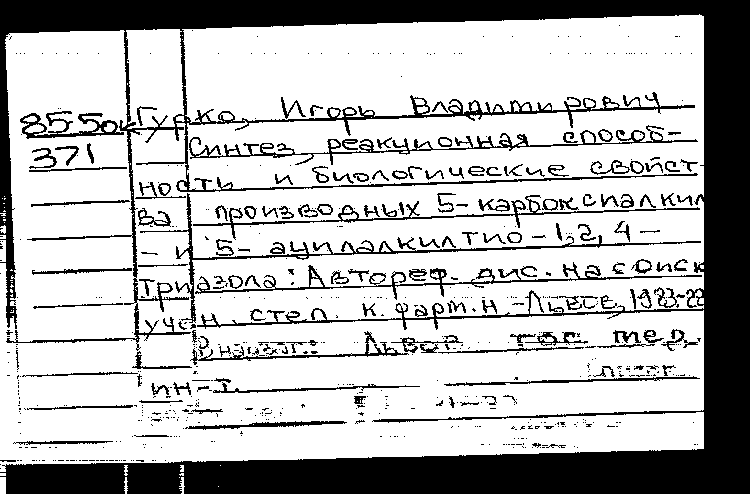 85-5ок Гурко, Игорь Владимирович
371 Синтез, реакционная способ-
ности и биологические свойст-
ва производных 5-карбоксиалкил
- и 5-ацилалкилтио-1,2,4-
триазола: Автореф. дис. на соиск
учен. степ. к. фарм. н. -Львов,
В надзаг.: Львов гос мед.
ин-т.